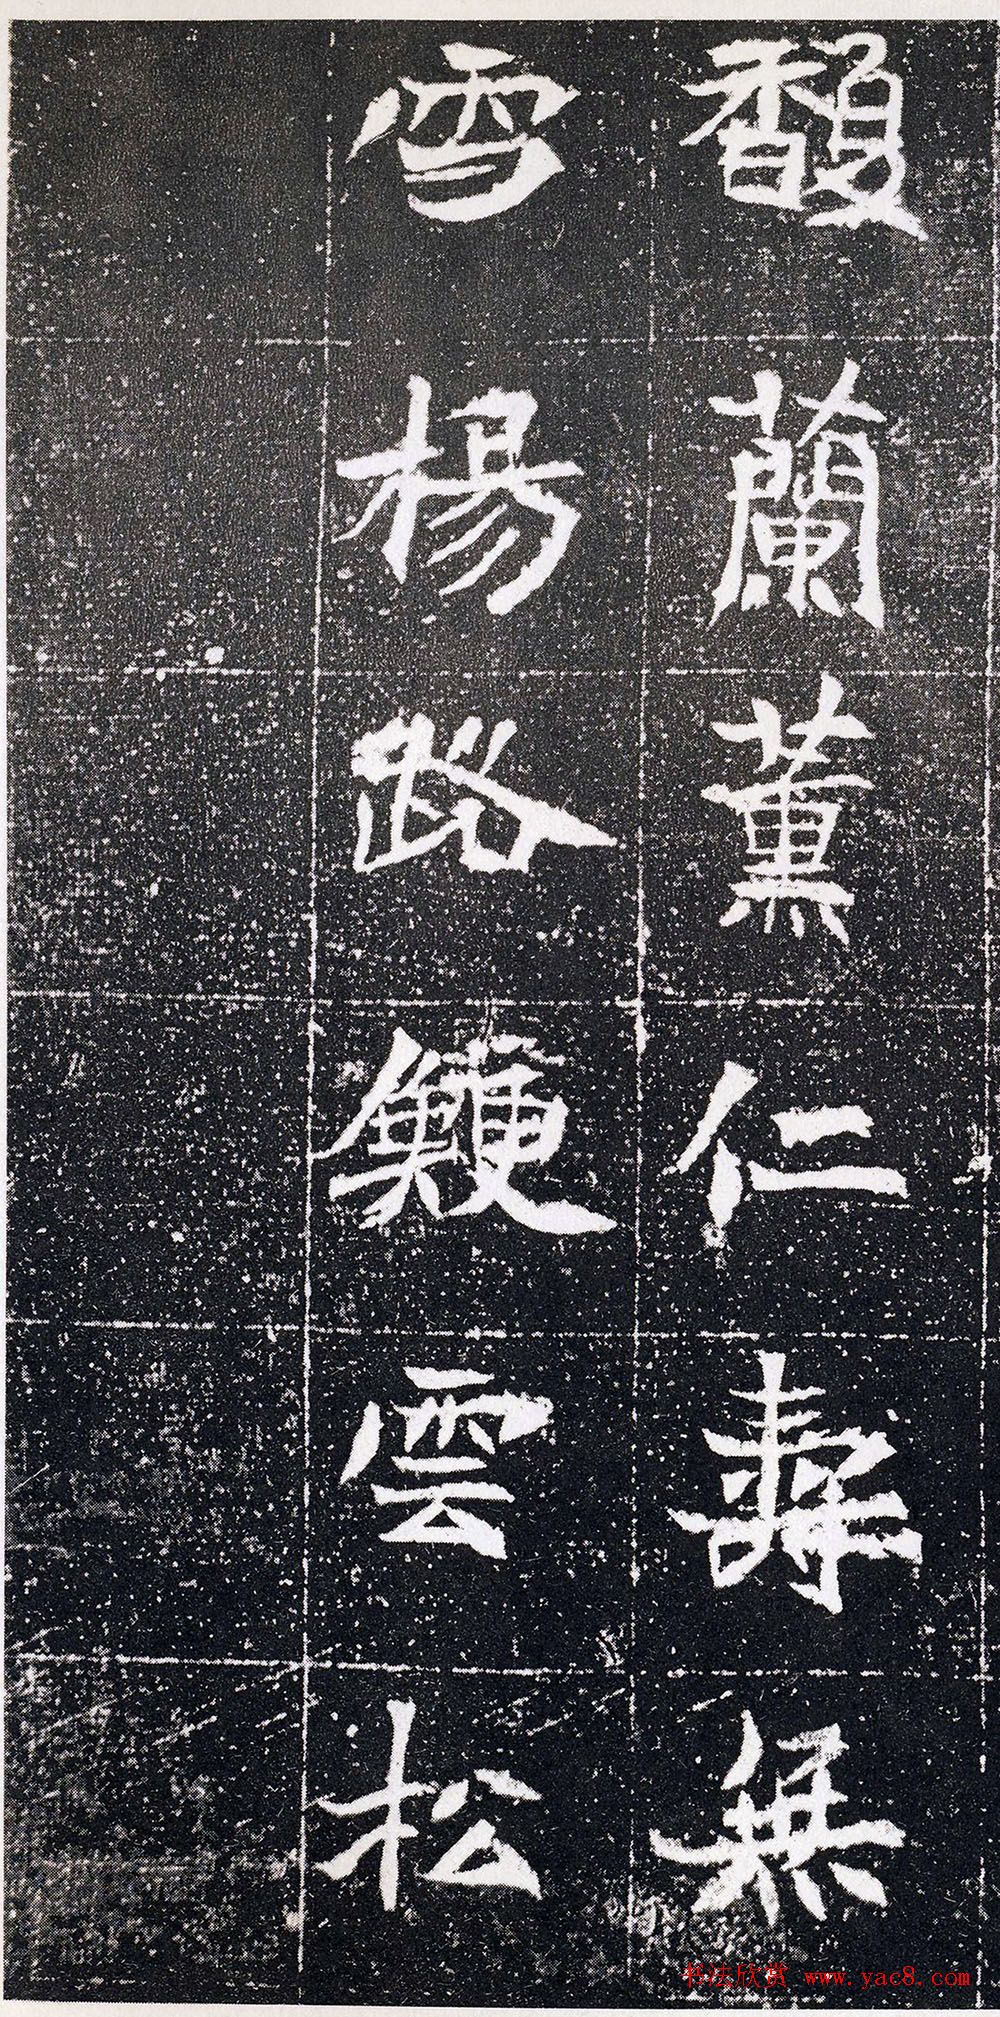 馥蘭薰仁壽無
雪楊路鯁雲松
书法欣赏 www.yac8.com